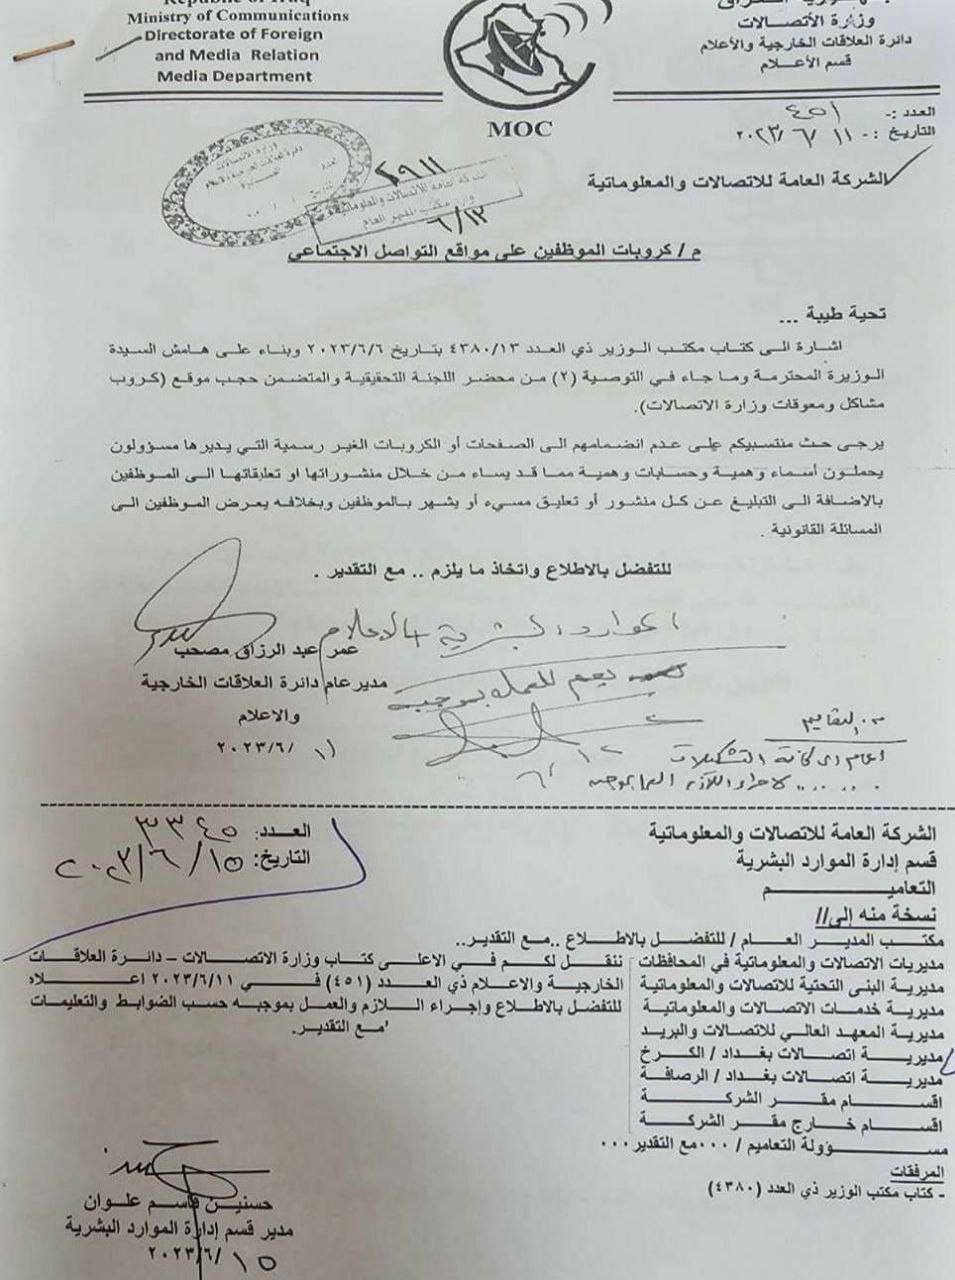 Republic of Iraq
Ministry of Communications
Directorate of Foreign
and Media Relation
Media Department
وزارة الأتصالات
دائرة العلاقات الخارجية والأعلام
قسم الأعـــلام
MOC
العدد :- ٤٥١
التاريخ :- ١١ / ٦ /٢٠٢٣
الشركة العامة للاتصالات والمعلوماتية
٢٩١١
الشركة العامة للاتصالات والمعلوماتية
وارد مكتب المدير العام
٦/١٢
م / كروبات الموظفين على مواقع التواصل الاجتماعي
تحية طيبة ...
اشارة الى كتاب مكتب الوزير ذي العدد ٤٣٨٠/١٣ بتاريخ ٢٠٢٣/٦/٦ وبناء على هامش السيدة
الوزيرة المحترمة وما جاء في التوصية (٢) من محضر اللجنة التحقيقية والمتضمن حجب موقع (كروب
مشاكل ومعوقات وزارة الاتصالات).
يرجى حث منتسبيكم على عدم انضمامهم الى الصفحات أو الكروبات الغير رسمية التي يديرها مسؤولون
يحملون أسماء وهمية وحسابات وهمية مما قد يساء من خلال منشوراتها او تعليقاتها الى الموظفين
بالاضافة الى التبليغ عن كل منشور أو تعليق مسيء أو يشهر بالموظفين وبخلافه يعرض الموظفين الى
المسائلة القانونية .
للتفضل بالاطلاع واتخاذ ما يلزم .. مع التقدير .
الموارد البشرية + الاعلام
عمر عبد الرزاق مصحب
يعمم للعمل بموجبه
مدير عام دائرة العلاقات الخارجية
والاعلام
١١ /٢٠٢٣/٦
التعاميم
اعمام الى كافة التشكيلات
لاجراء اللازم العمل بموجبه
العـدد: ٣٣٤٥
التاريخ: ٢٠٢٣/٦/١٥
الشركة العامة للاتصالات والمعلوماتية
قسم إدارة الموارد البشرية
التعاميـــــــــــــم
نسخة منه إلى//
مكتب المديـر العـام / للتفضل بالاطـلاع ..مع التقدير..
مديريات الاتصالات والمعلوماتية في المحافظات
مديرية البنى التحتية للاتصالات والمعلوماتية
مديرية خدمات الاتصالات والمعلوماتية
مديرية المعهد العالي للاتصالات والبريد
مديريـــة اتصالات بغداد / الكـرخ
مديريـــة اتصالات بغداد / الرصافة
اقســـام مقـر الشركـــة
اقســـام خـارج مقـر الشركـة
مســـؤولة التعاميم / ...مع التقدير...
المرفقات
- كتاب مكتب الوزير ذي العدد (٤٣٨٠)
ننقل لكـم فـي الاعلـى كتـاب وزارة الاتصـالات – دائـرة العلاقـات
الخارجيـة والاعـلام ذي العـدد (٤٥١) فـي ٢٠٢٣/٦/١١ اعـلاه
للتفضل بالاطلاع وإجراء اللازم والعمل بموجبه حسب الضوابط والتعليمات
'مع التقدير.
حسنيـن قاسـم علـوان
مدير قسم إدارة الموارد البشرية
١٥ /٢٠٢٣/٦